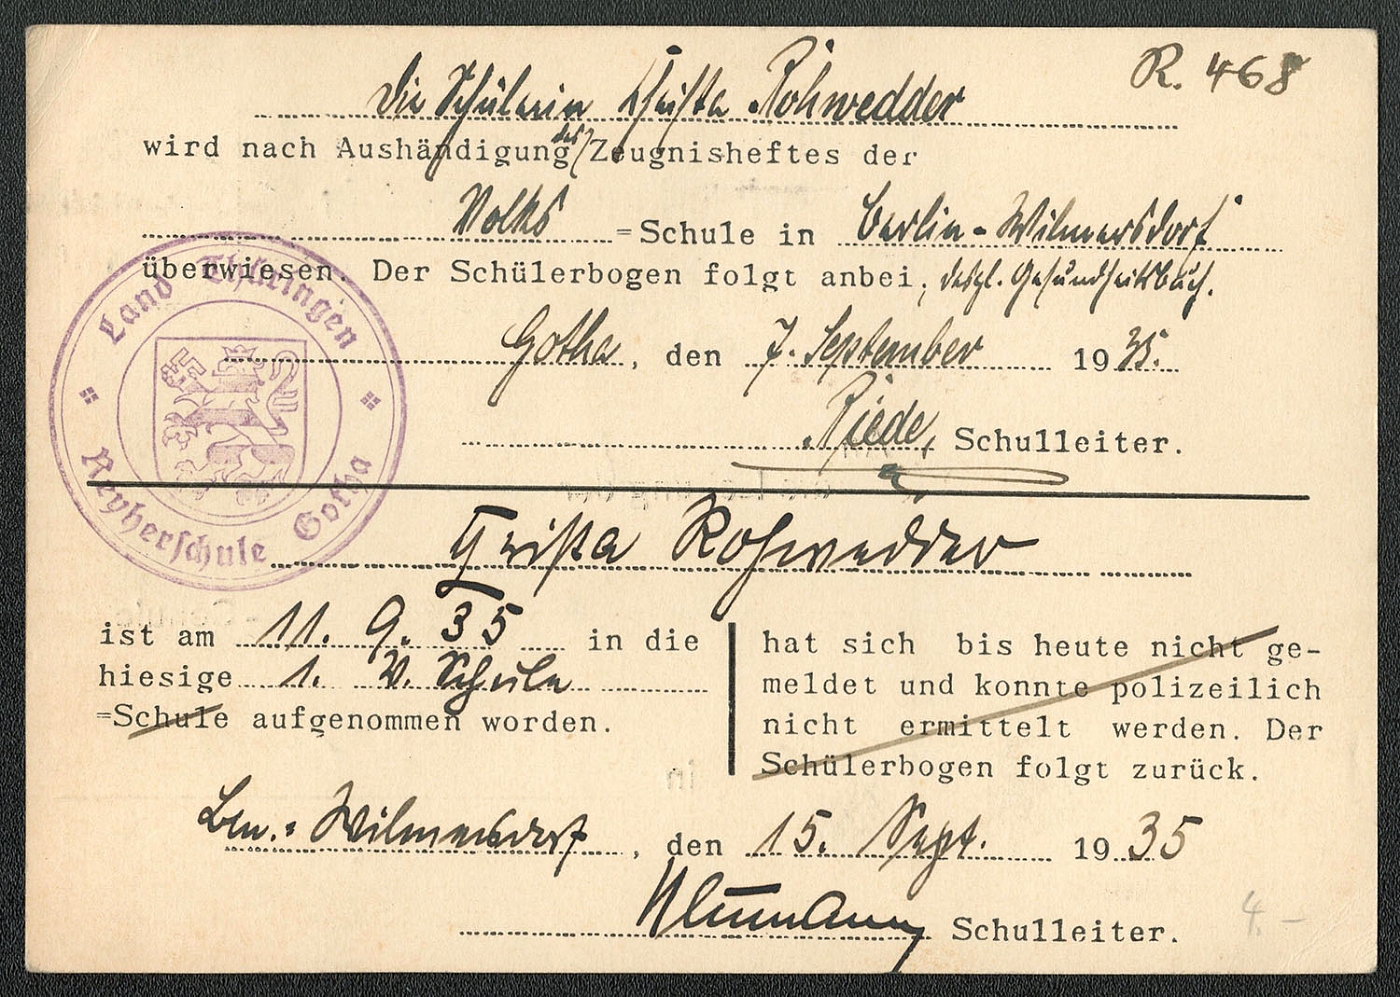 R. 468
Die Schülerin Christa Rohwedder
wird nach Aushändigung des Zeugnisheftes der
Volks =Schule in Berlin-Wilmersdorf
überwiesen. Der Schülerbogen folgt anbei, desgl. Gesundheitsbuch.
Gotha, den 7. September 1935.
Riede, Schulleiter.
Land Thüringen
Reyherschule Gotha
Christa Rohwedder
ist am 11. 9. 35 in die
hiesige 1. V. Schule
=Schule aufgenommen worden.
hat sich bis heute nicht ge-
meldet und konnte polizeilich
nicht ermittelt werden. Der
Schülerbogen folgt zurück.
Bln.-Wilmersdorf, den 15. Sept. 1935
Schulleiter.
4.-